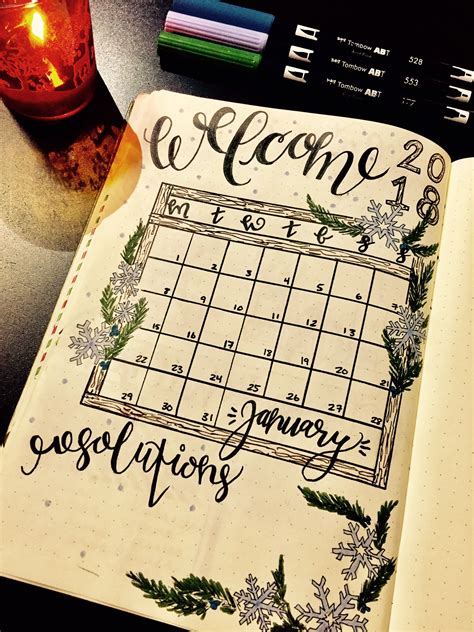 Tombow ABT 528
Tombow ABT 553
Tombow ABT
welcome
20
18
m t w t f s s
1 2 3 4 5 6 7
8 9 10 11 12 13 14
15 16 17 18 19 20 21
22 23 24 25 26 27 28
29 30 31 January
resolutions